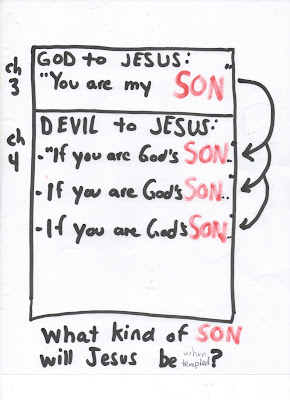 ch
3
GOD to JESUS:
"You are my SON"
ch
4
DEVIL to JESUS:
-"If you are God's SON..
-If you are God's SON..
-If you are God's SON..
What kind of SON
will Jesus be when tempted?